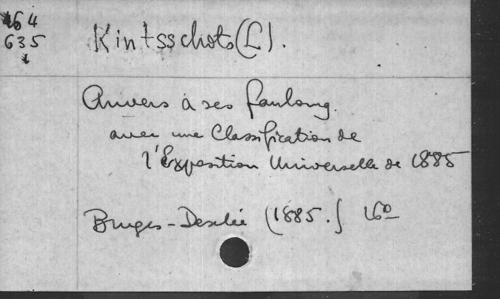 164
635
Kintsschots (L).
Anvers à ses faubourg.
avec une Classification de
l'Exposition Universelle de 1885
Bruges-Desclée (1885.) 16º